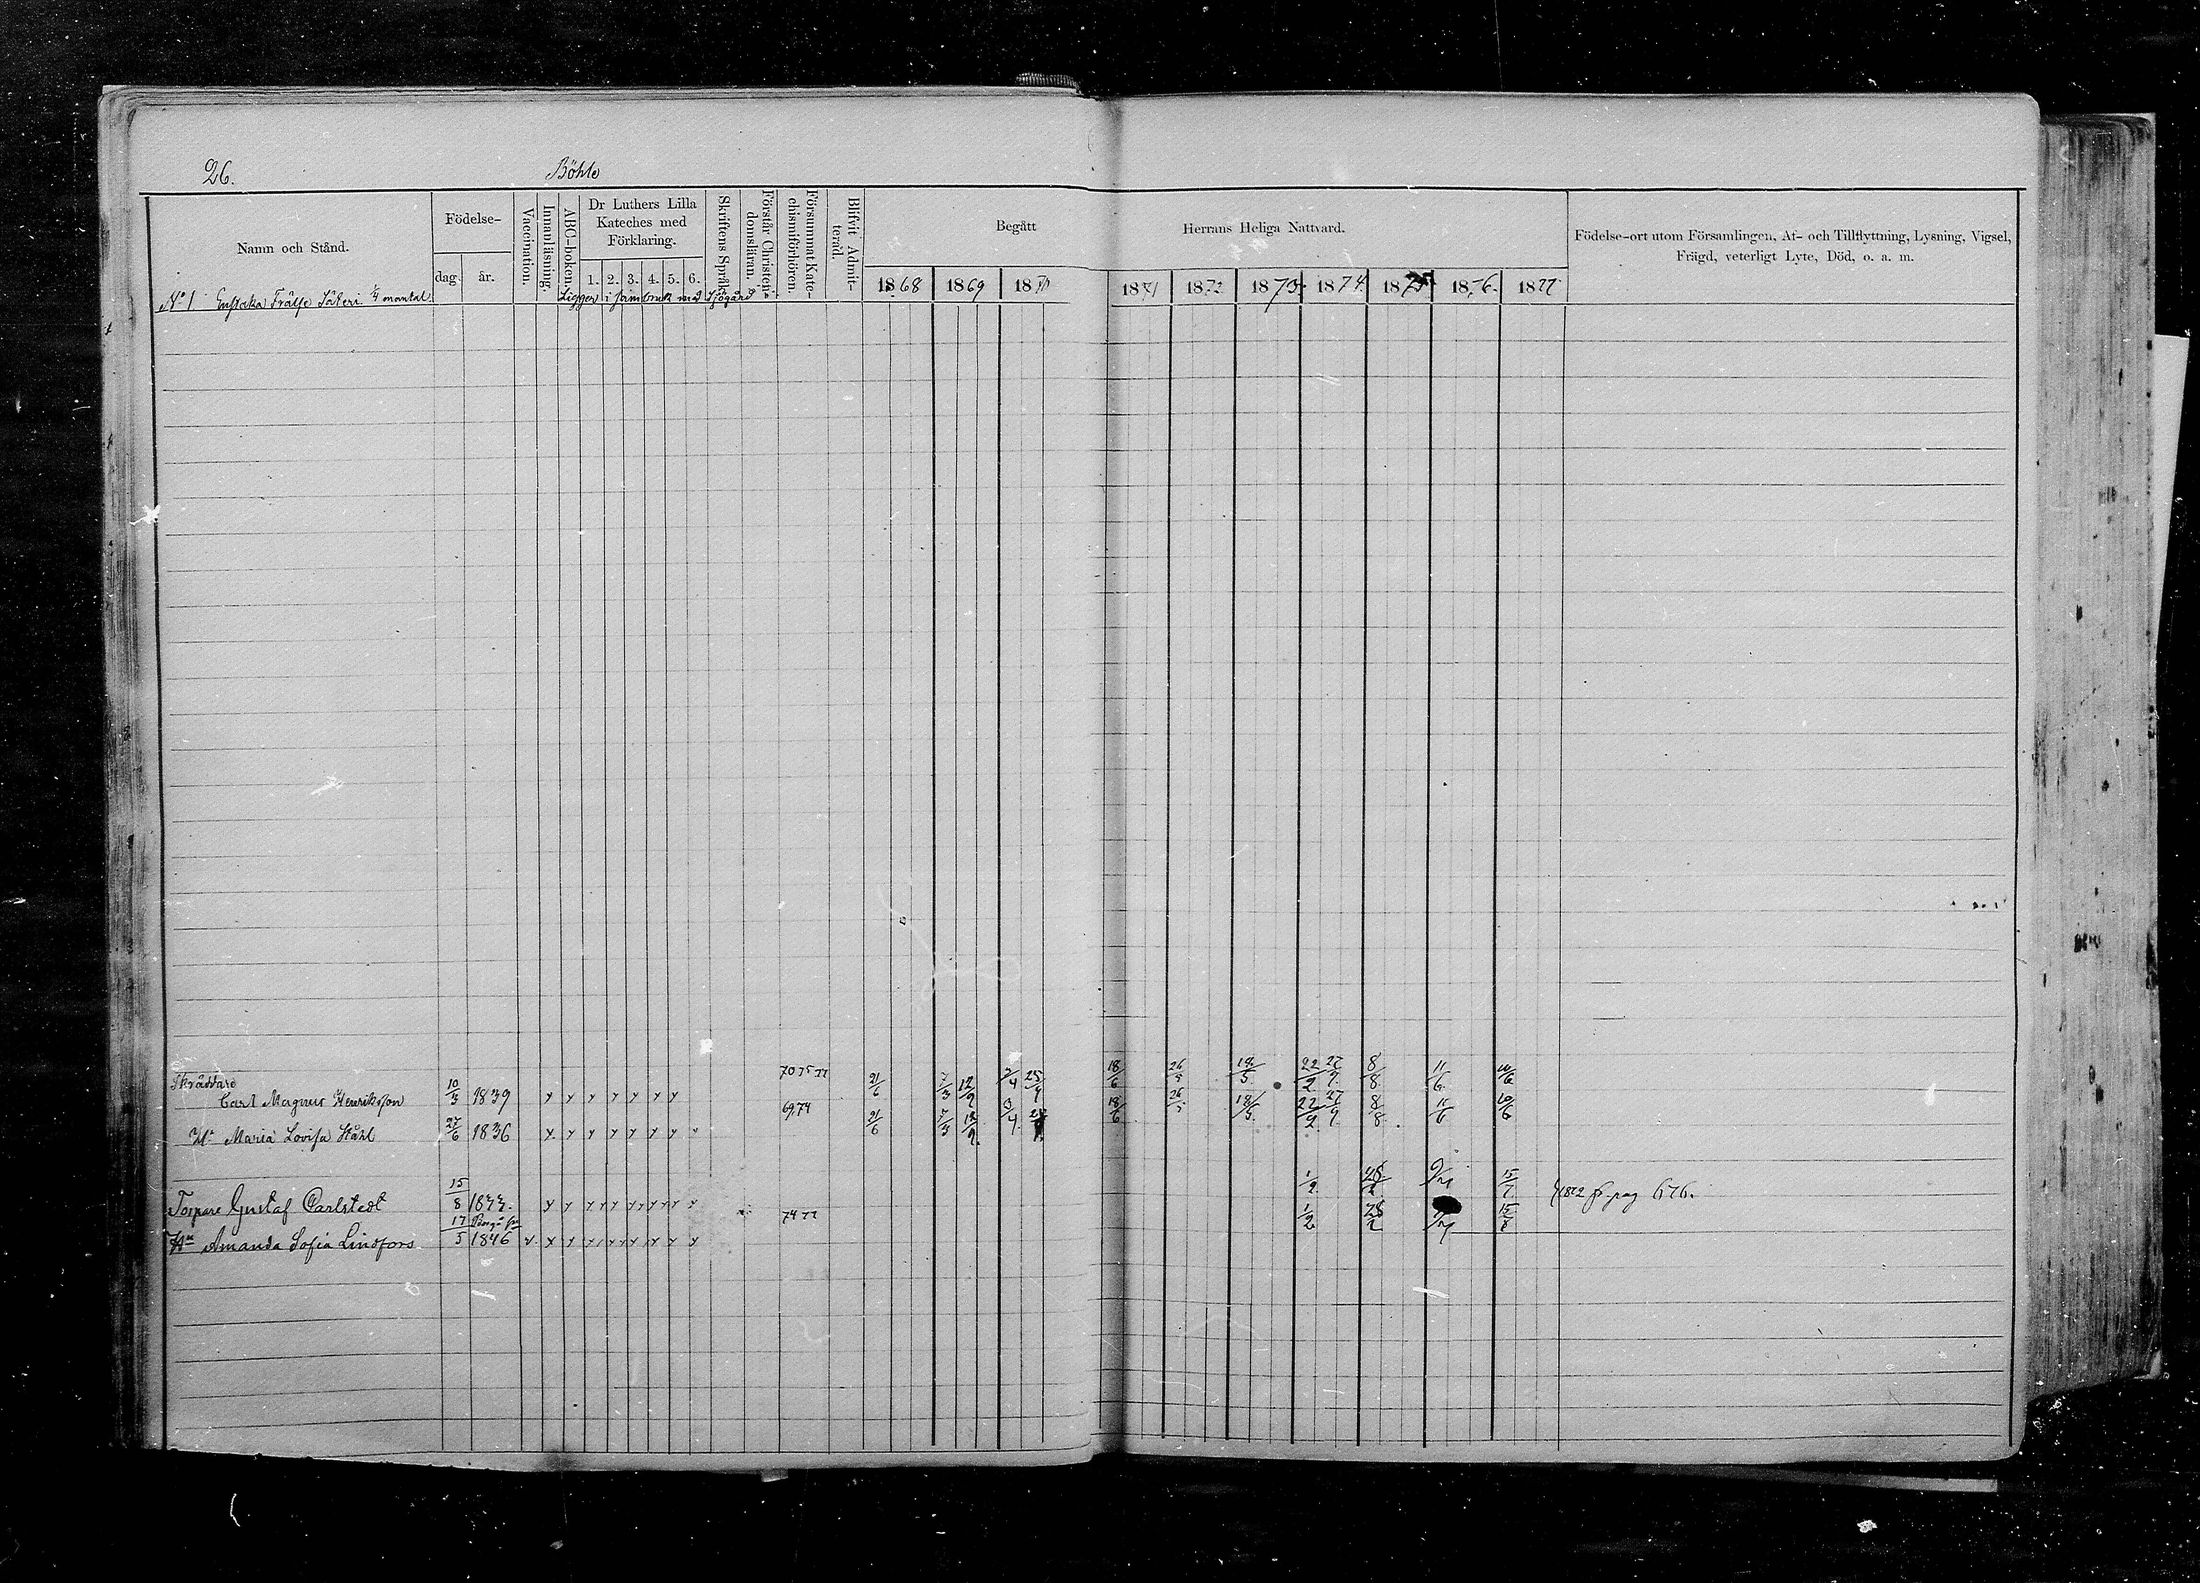 26. Böhle
Namn och Stånd.
Födelse-
dag. år.
Vaccination.
Innanläsning.
ABC-boken.
Dr Luthers Lilla
Kateches med
Förklaring.
1. 2. 3. 4. 5. 6.
Skriftens Språk.
Förstår Christen-
domsläran.
Försummat Kate-
chismiförhören.
Blifvit Admit-
terad.
Begått Herrans Heliga Nattvard.
1868 1869 1870 1871 1872 1873 1874 1875 1876. 1877
Födelse-ort utom Församlingen, Af- och Tillflyttning, Lysning, Vigsel,
Frägd, veterligt Lyte, Död, o. a. m.
No 1 Frälse Säteri 1/4 mantal Ligger i sambruk med Sjögård
Skräddare 70 75 77
Carl Magnus Henriksson 10/3 1839 21/6 7/3 12/9 25/9 18/6 18/5. 22/2 27/9. 8/8 11/6.
69,74
Hu Maria Lovisa Ståhl 27/6 1836 21/6 7/3 12/9 3/4 18/6 18/5. 22/2. 27/9. 8/8. 11/6 10/6
Torpare Gustaf Carlstedt 15/8 1/2 15/7 1872 fr pag 676.
74 77
Hu Amanda Sofia Lindfors 17/5 1846 1/2 15/8